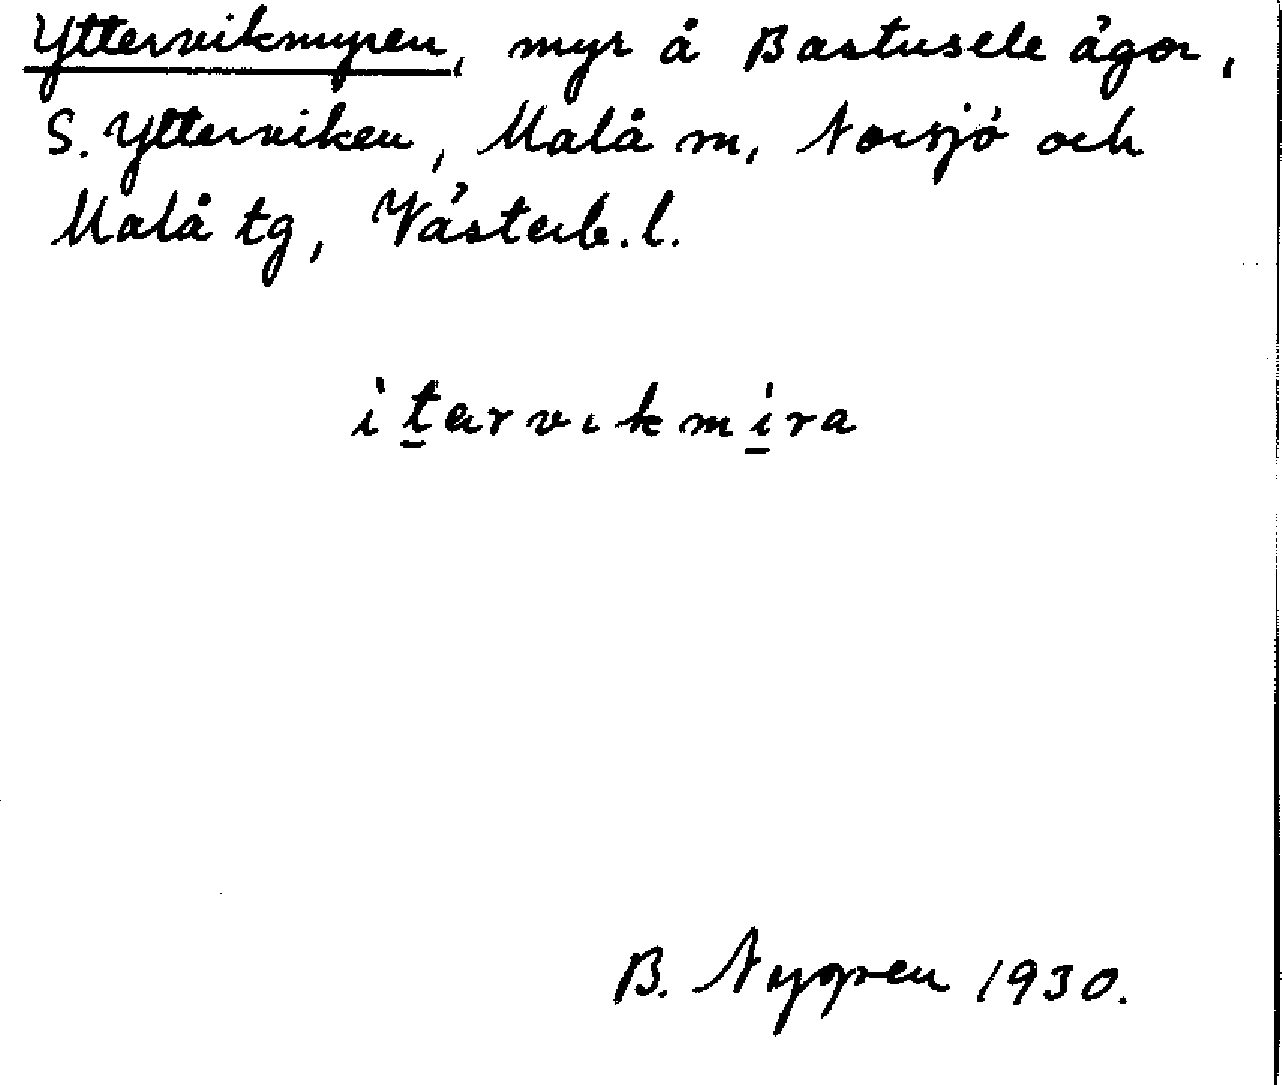 Yttervikmyren, myr å Bastusele ägor,
S. Ytterviken, Malå sn, Norsjö och
Malå tg, Västerb. l.
ìt̲ervikmí̲ra
B. Nygren 1930.